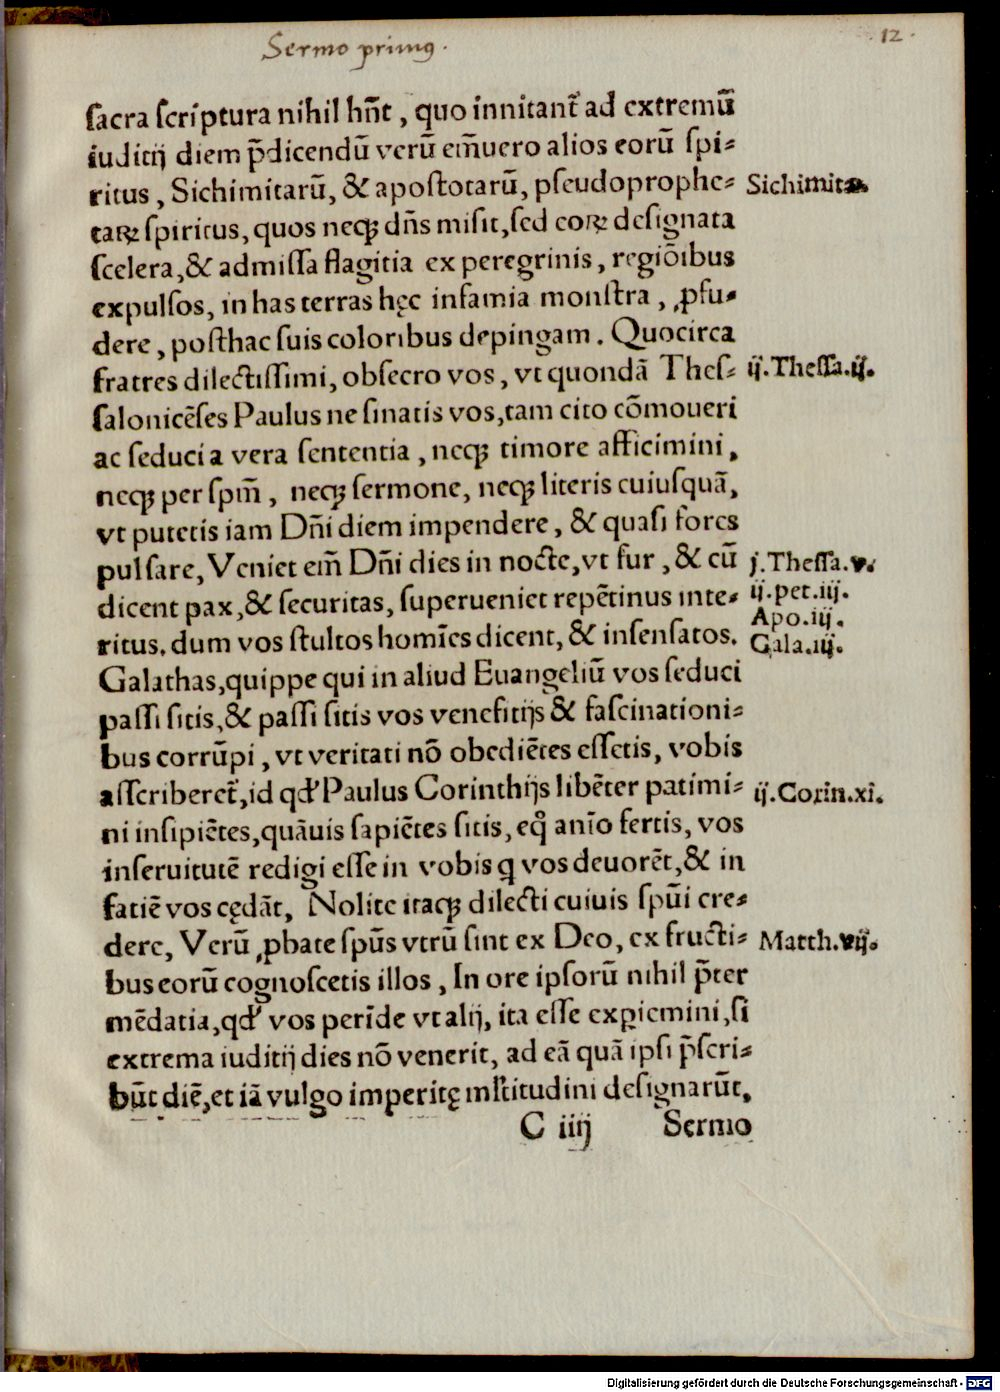 Sermo primꝰ.
12.
ſacra ſcriptura nihil hn̄t, quo innitant᷑ ad extremū
iuditij diem p̄dicendū verū em̄uero alios eorū ſpi⸗
ritus, Sichimitarū, & apoſtotarū, pſeudoprophe⸗
Sichimitæ.
taꝝ ſpiritus, quos neqꝫ dn̄s miſit, ſed eoꝝ deſignata
ſcelera, & admiſſa flagitia ex peregrinis, regiōibus
expulſos, in has terras hęc infamia monſtra, ꝓfu⸗
dere, poſthac ſuis coloribus depingam. Quocirca
fratres dilectiſſimi, obſecro vos, vt quondā Theſ⸗
ij.Theſſa.ij.
ſalonicēſes Paulus ne ſinatis vos, tam cito cōmoueri
ac ſeduci a vera ſententia, neqꝫ timore afficimini,
neqꝫ per ſpm̄, neqꝫ ſermone, neqꝫ literis cuiuſquā,
vt putetis iam Dn̄i diem impendere, & quaſi fores
pulſare, Veniet em̄ Dn̄i dies in nocte, vt fur, & cū
j.Theſſa.v.
dicent pax, & ſecuritas, ſuperueniet repētinus inte⸗
ij.pet.iij.
Apo.iij.
ritus. dum vos ſtultos homīes dicent, & inſenſatos.
Gala.iij.
Galathas, quippe qui in aliud Euangeliū vos ſeduci
paſſi ſitis, & paſſi ſitis vos venefitijs & faſcinationi⸗
bus corrūpi, vt veritati nō obediētes eſſetis, vobis
aſſcriberet᷑, id qđ Paulus Corinthijs libēter patimi⸗
ij.Corin.xi.
ni inſipiētes, quāuis ſapiētes ſitis, eq̊ anīo fertis, vos
inſeruitutē redigi eſſe in vobis q vos deuorēt, & in
fatiē vos cędāt, Nolite itaqꝫ dilecti cuiuis ſpūi cre⸗
dere, Verū ꝓbate ſpūs vtrū ſint ex Deo, ex fructi⸗
Matth.vij.
bus eorū cognoſcetis illos, In ore ipſorū nihil p̄ter
mēdatia, qđ vos perīde vt alij, ita eſſe expiemini, ſi
extrema iuditij dies nō venerit, ad eā quā ipſi p̄ſcri⸗
būt diē, et iā vulgo imperitę ml̄titudini deſignarūt.
C iiij
Sermo
Digitalisierung gefördert durch die Deutsche Forschungsgemeinschaft - DFG